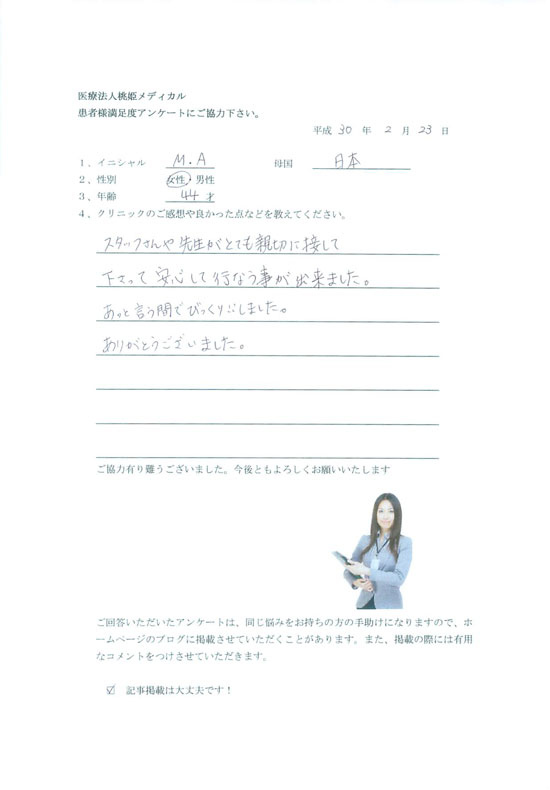 医療法人桃姫メディカル
患者様満足度アンケートにご協力下さい。
平成 30 年 2 月 23 日
1、イニシャル M.A 母国 日本
2、性別 女性・男性
3、年齢 44 才
4、クリニックのご感想や良かった点などを教えてください。
スタッフさんや先生がとても親切に接して
下さって安心して行なう事が出来ました。
あっと言う間でびっくりしました。
ありがとうございました。
ご協力有り難うございました。今後ともよろしくお願いいたします
ご回答いただいたアンケートは、同じ悩みをお持ちの方の手助けになりますので、ホ
ームページのブログに掲載させていただくことがあります。また、掲載の際には有用
なコメントをつけさせていただきます。
☑ 記事掲載は大丈夫です！